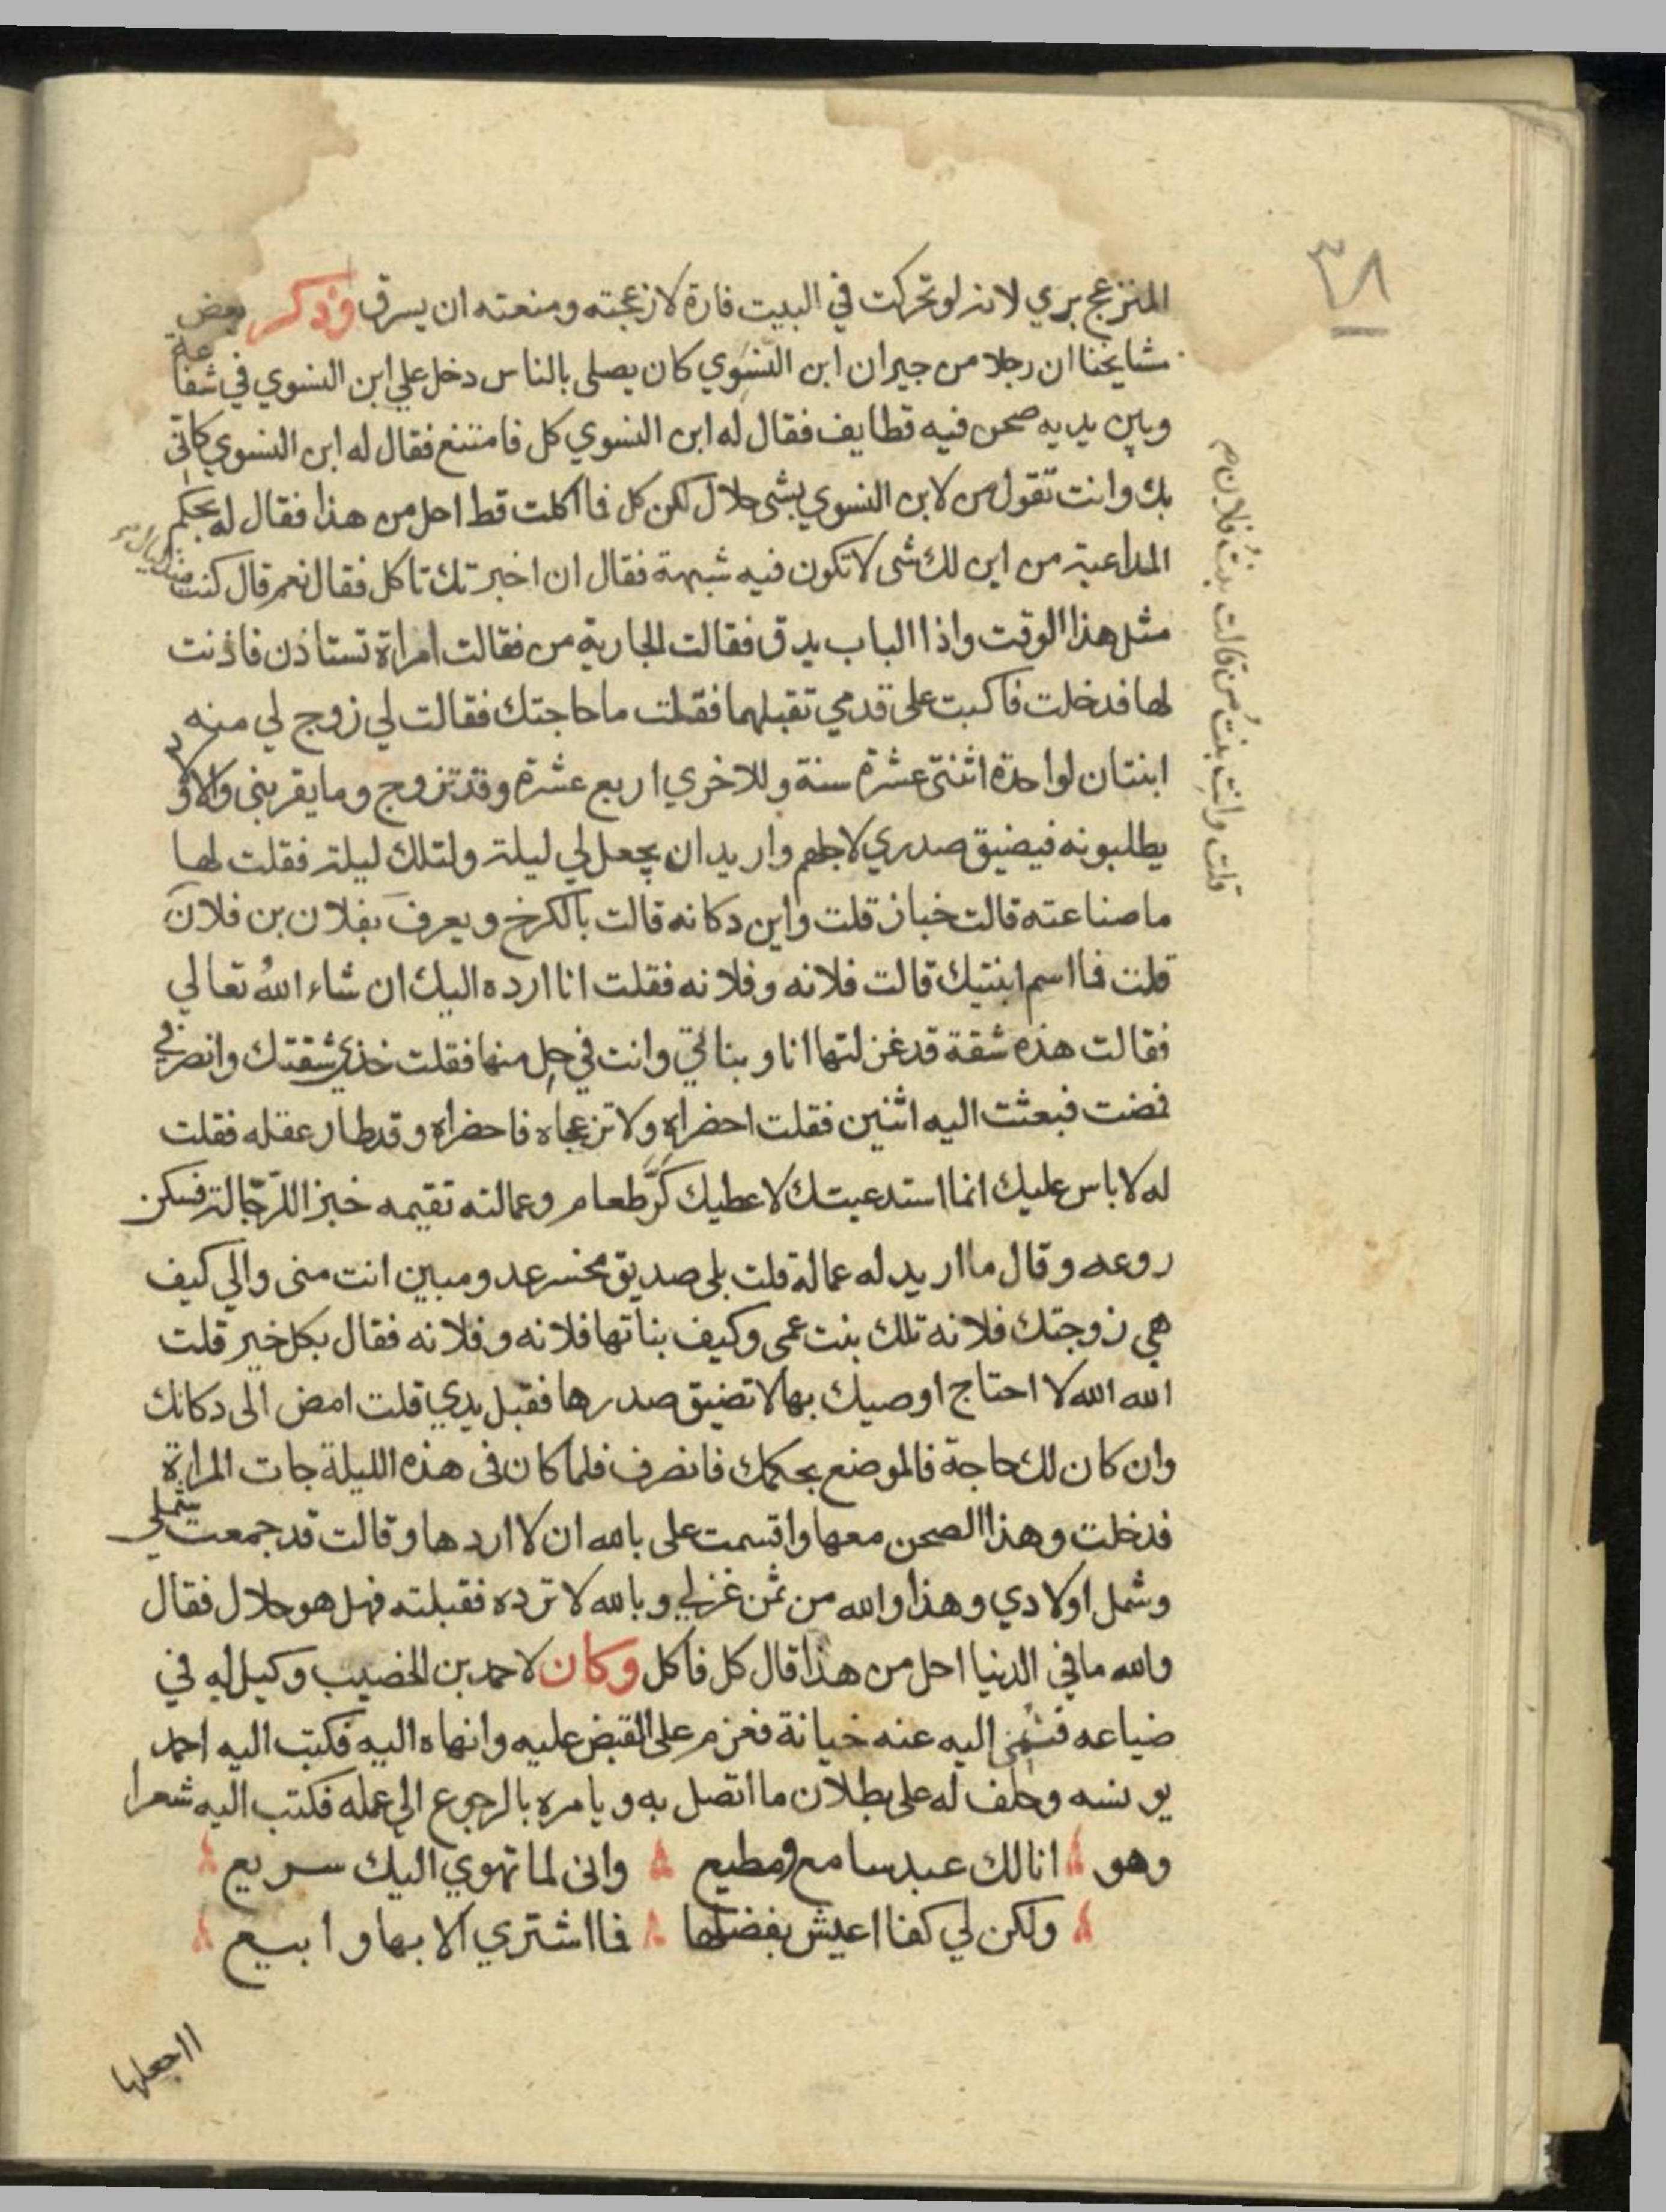 ٣٨
المنزعج بري لانه لو تحركت في البيت فارة لازعجته ومنعته ان يسرق وذكر بعض
مشايخنا ان رجلا من جيران ابن النسوي كان يصلى بالناس دخل علي ابن النسوي في شفاعة
وبين يديه صحن فيه قطايف فقال له ابن النسوي كل فامتنع فقال له ابن النسوي كاني
بك وانت تقول من لابن النسوي بشى حلال لكن كل فما اكلت قط احل من هذا فقال له بحكم
المداعبة من اين لك شى لا تكون فيه شبهة فقال ان اخبرتك تاكل فقال نعم قال كنت منذ ليال في
مثل هذا الوقت واذا الباب يدق فقالت الجارية من فقالت امراة تستاذن فاذنت
لها فدخلت فاكبت على قدمي تقبلهما فقلت ما حاجتك فقالت لي زوج لي منه
ابنتان لواحدة اثنتى عشرة سنة وللاخري اربع عشرة وقد تزوج وما يقربنى والاولاد
يطلبونه فيضيق صدري لاجلهم واريد ان يجعل لي ليلة ولتلك ليلة فقلت لها
ما صناعته قالت خباز قلت واين دكانه قالت بالكرخ ويعرف بفلان بن فلان
قلت وانتِ بنتُ من قالت بنتُ فلان م
قلت فما اسم ابنتيك قالت فلانه وفلانه فقلت انا ارده اليك ان شاء الله تعالي
فقالت هذه شقة قد غزلتها انا وبناتي وانت في حل منها فقلت خذي شقتك وانصرفي
فمضت فبعثت اليه اثنين فقلت احضراه ولا تزعجاه فاحضراه وقد طار عقله فقلت
له لا باس عليك انما استدعيتك لاعطيك كرّ طعام وعمالته تقيمه خبز اللرّجّالة فسكن
روعه وقال ما اريد له عمالة قلت بلى صديق مخسر عدو مبين انت منى والي كيف
هي زوجتك فلانه تلك بنت عمى وكيف بناتها فلانه وفلانه فقال بكل خير قلت
الله الله لا احتاج اوصيك بها لا تضيق صدرها فقبل يدي قلت امض الى دكانك
وان كان لك حاجة فالموضع بحكمك فانصرف فلما كان فى هذه الليلة جات المراة
فدخلت وهذا الصحن معها واقسمت على بالله ان لا اردها وقالت قد جمعت شملي
وشمل اولادي وهذا والله من ثمن غزلي وبالله لا ترده فقبلته فهل هو حلال فقال
والله ما في الدنيا احل من هذا قال كل فاكل وكان لاحمد بن الخصيب وكيل له في
ضياعه فنُمى اليه عنه خيانة فعزم على القبض عليه وانهاه اليه فكتب اليه احمد
يونسه وحلف له على بطلان ما اتصل به ويامره بالرجوع الي عمله فكتب اليه شعرا
وهو انا لك عبد سامع ومطيع وانى لما تهوي اليك سريع
ولكن لي كفا اعيش بفضلها فما اشتري الا بها وابيع
ااجعلها